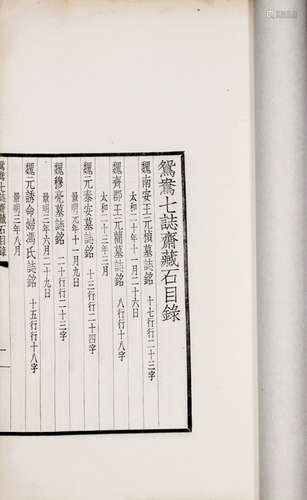 鴛鴦七誌齋藏石目錄
魏南安王元楨墓誌銘 十七行行二十三字
太和二十年十一月二十六日
魏齊郡王元簡墓誌銘 八行行十八字
太和二十三年三月
魏元泰安墓誌銘 十三行行二十四字
景明元年十一月九日
魏穆亮墓誌銘 二十行行二十三字
景明三年六月二十九日
魏元誘命婦馮氏誌銘 十五行行十八字
景明三年八月
鴛鴦七誌齋藏石目錄
一